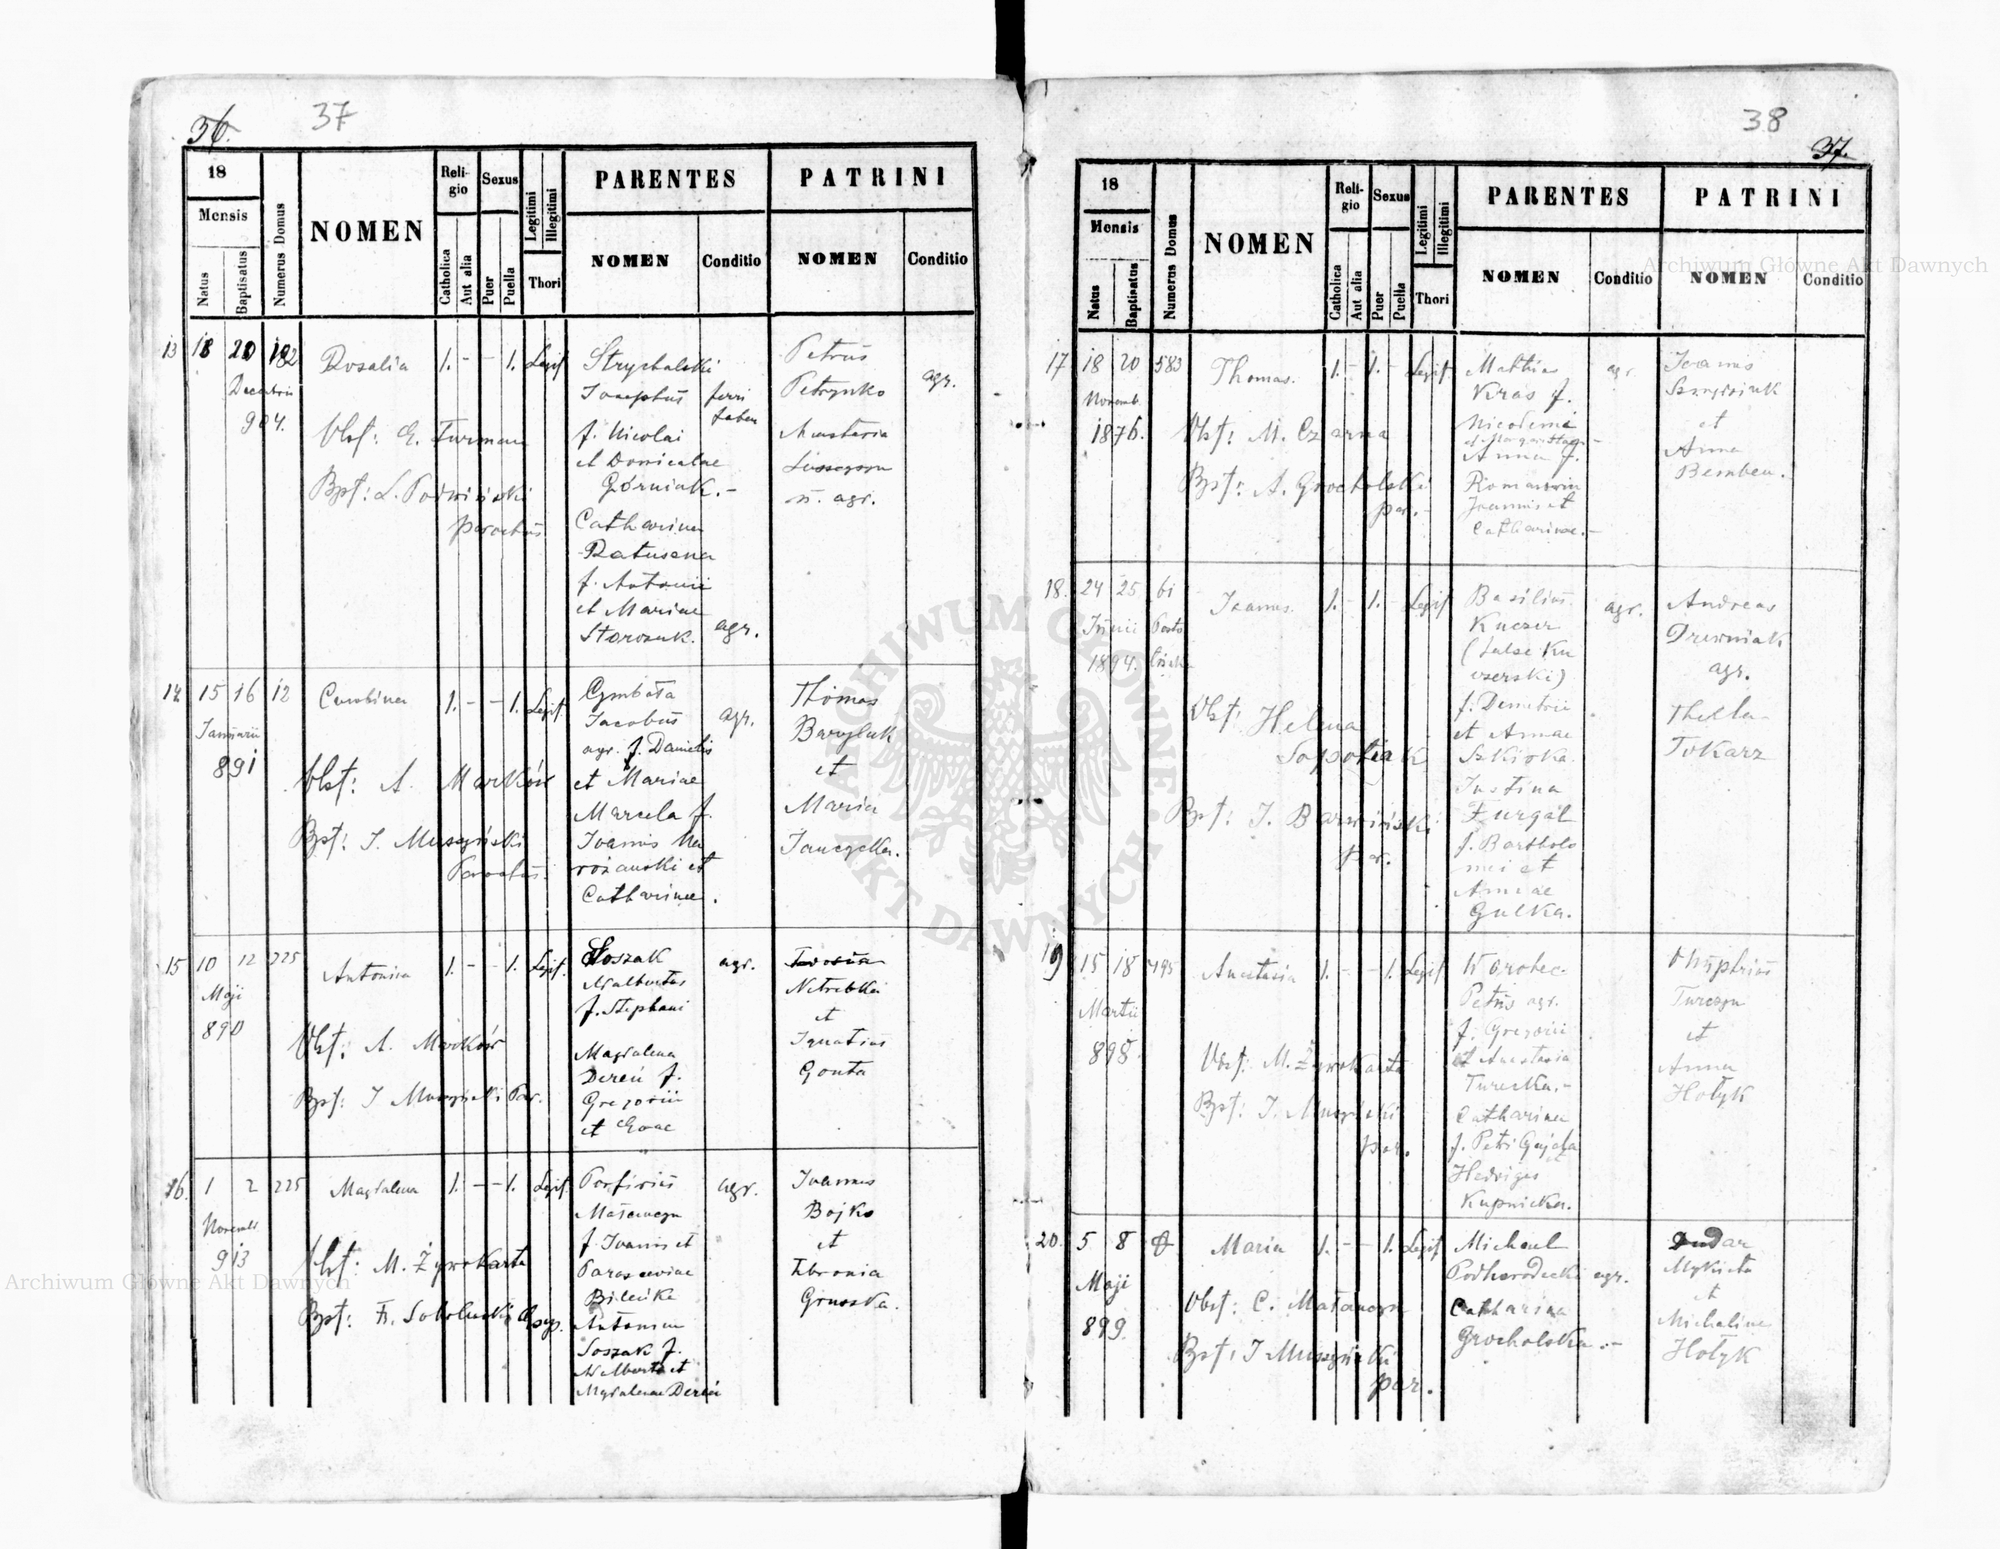 36.
37
18
Mensis
Natus
Baptisatus
Numerus Domus
NOMEN
Religio
Catholica
Aut alia
Sexus
Puer
Puella
Legitimi
Illegitimi
Thori
PARENTES
NOMEN
Conditio
PATRINI
NOMEN
Conditio
13 18 20 182 Rosalia 1. - - 1. Legit.
904.
Obst: G. Furman
Bpt: L. Podwiński
parochus
Strychalski
Josephus
f. Nicolai
et Donicelae
Górniak. -
Catharina
Ratusana
f. Antonii
et Mariae
Storozuk. agr.
Petrus
Petrynko agr.
Anastasia
n. agr.
14 15 16 12 Carolina 1. - - 1. Legit.
Januarii
891
Obst: A. Marków
Bpt: J. Muszyński
Parochus.
Cymbała
Jacobus agr.
agr. f. Danielis
et Mariae
Marcela f.
Joannis
et
Catharinae.
Thomas
Baryluk
et
Maria
Janeczka.
15 10 12 225 Antonina 1. - - 1. Legit.
Maji
890
Obst: A. Marków
Bpt: J Muszyński Par.
Soszak agr.
Adalbertus
f. Stephani
Magdalena
Dereń f.
Gregorii
et Evae
Netrebka
et
Ignatius
Gonta
16. 1 2 225 Magdalena 1. - - 1. Legit.
Novemb
913
Obst: M. Żywokarta
Bpt: Fr. Sokołuski
Porfirius agr.
Matawaga
f. Joannis et
Parasceviae
Bileńka
Antonina
Soszak f.
Adalberti et
Magdalenae Dereń
Joannes
Bojko
et
Febronia
Gruszka.
38
37.
18
Mensis
Natus
Baptisatus
Numerus Domus
NOMEN
Religio
Catholica
Aut alia
Sexus
Puer
Puella
Legitimi
Illegitimi
Thori
PARENTES
NOMEN
Conditio
PATRINI
NOMEN
Conditio
17 18 20 583 Thomas. 1. - 1. - Legit.
Novemb.
1876.
Obst: M. Czarna
Bpt: A. Grocholski
par. -
Mathias agr.
Kras f.
Nicodemi
Anna f.
Joannis et
Catharinae. -
Joannes
et
Anna
Bemben.
18. 24 25 61 Joannes. 1. - 1. - Legit
Junii
1894.
Obst: Helena
Sopotiak
Bpt: J. Barwiński
par.
Basilius agr.
Kuczer
(false Ku
czerski)
f. Demetrii
et Annae
Szkiołka.
Justina
Furgał
f. Bartholo
mei et
Annae
Gulka.
Andreas
Drewniak
agr.
Thecla
Tokarz
19 15 18 495 Anastasia 1. - - 1. Legit
Martii
898.
Obst: M. Żywokarta
Bpt: J. Muszyński
par.
Worobec.
Petrus agr.
f. Gregorii
et Anastasia
Turecka. -
Catharina
f. Petri Gajda
Hedviges
Kupnicka.
Onuphrius
Tureczyn
et
Anna
Hołyk
20. 5 8 Maria 1. - - 1. Legit
Maji
899.
Obst: C. Matawaga
Bpt: J Muszyński
par.
Michael
Podhorodecki agr.
Catharina
Grocholska. -
Mykieta
et
Michalina
Hołyk
Archiwum Główne Akt Dawnych
Archiwum Główne Akt Dawnych
ARCHIWUM GŁÓWNE
AKT DAWNYCH